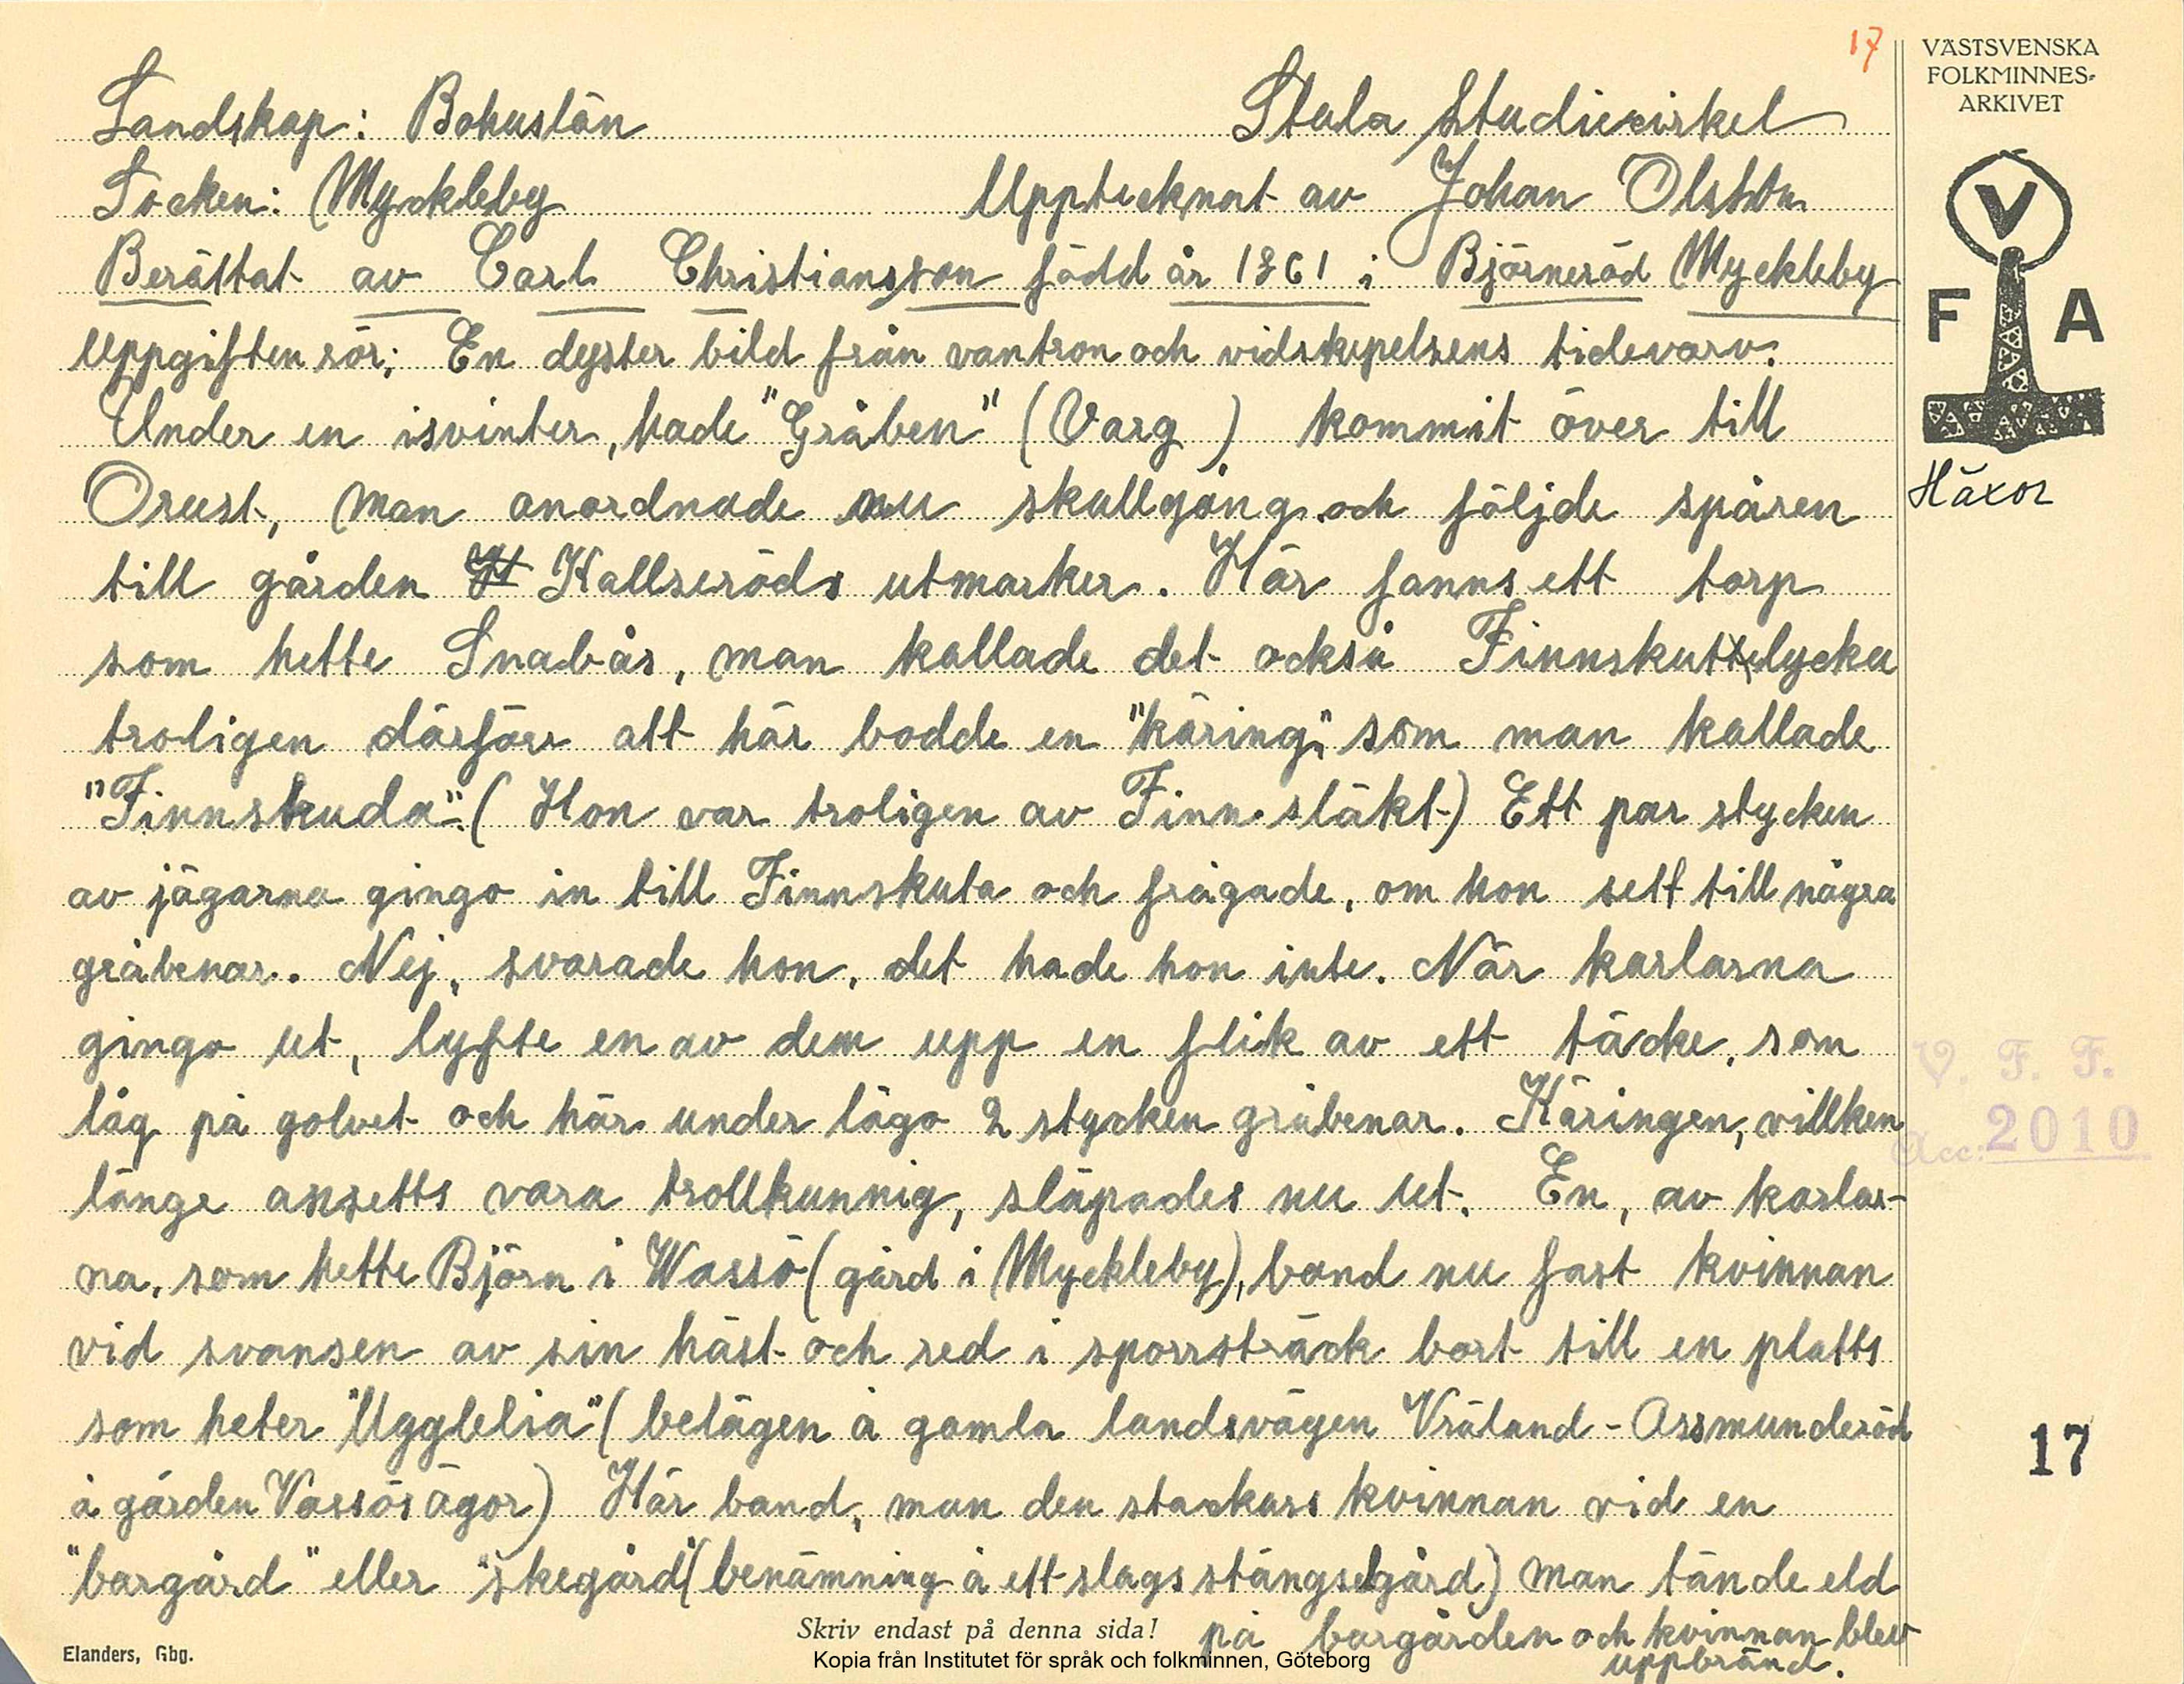 17
VÄSTSVENSKA
FOLKMINNES-
ARKIVET
V
F A
Häxor
Landskap: Bohuslän Stala Studiecirkel
Socken: Myckleby Upptecknat av Johan Olsson
Berättat av Carl Christiansson född år 1861 i Björneröd Myckleby
Uppgiften rör; En dyster bild från vantron och vidskepelsens tidevarv.
Under en isvinter, hade "Gråben" (Varg) kommit över till
Orust, man anordnade nu skallgång och följde spåren
till gården Kallseröds utmarker. Här fanns ett torp
som hette Snabås, man kallade det också Finnskutelycka
troligen därföre att här bodde en "käring", som man kallade
"Finnskuda". (Hon var troligen av Finn släkt) Ett par stycken
av jägarna gingo in till Finnskuta och frågade, om hon sett till några
gråbenar. Nej, svarade hon, det hade hon inte. När karlarna
gingo ut, lyfte en av dem upp en flik av ett täcke, som
låg på golvet och här under lågo 2 stycken gråbenar. Käringen, villken
länge ansetts vara trollkunnig, släpades nu ut. En, av karlar-
na, som hette Björn i Wassö (gård i Myckleby), band nu fast kvinnan
vid svansen av sin häst och red i sporrsträck bort till en platts
som heter "Ugglelia" (belägen å gamla landsvägen Vräland - Assmunderöd
å gården Vassös ägor) Här band, man den stackars kvinnan vid en
"bargård" eller "skegård" (benämning å ett slags stängselgård) man tände eld
på bargården och kvinnan blev
uppbränd.
V. F. F.
Acc: 2010
17
Skriv endast på denna sida!
Elanders, Gbg.
Kopia från Institutet för språk och folkminnen, Göteborg